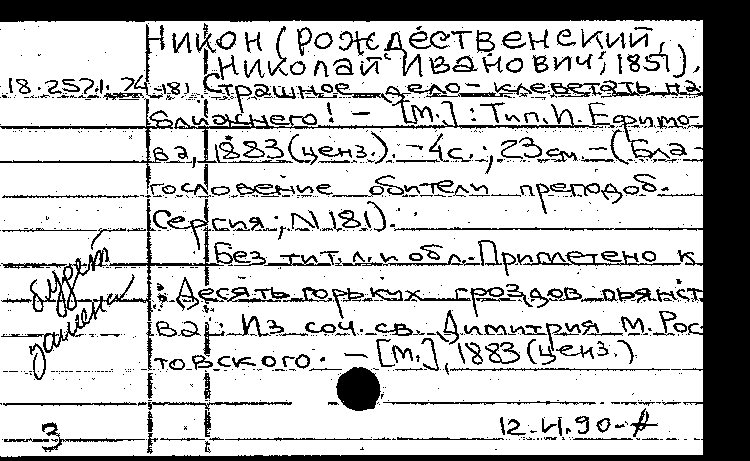 Никон (Рождественский,
Николай Иванович; 1851).
18.2521.24-181 Страшное дело - клеветать на
ближнего! - [М.]: Тип. И. Ефимо-
ва, 1883 (ценз.). - 4с.; 23 см. - (Бла-
гословение обители преподоб.
Сергия; N 181).
Без тит. л. и обл. - Приплетено к
: Десять горьких гроздов пьянст
ва: Из соч. св. Димитрия М. Рос
товского. - [М.], 1883 (ценз.)
будет
замена
3
12.VI.90-